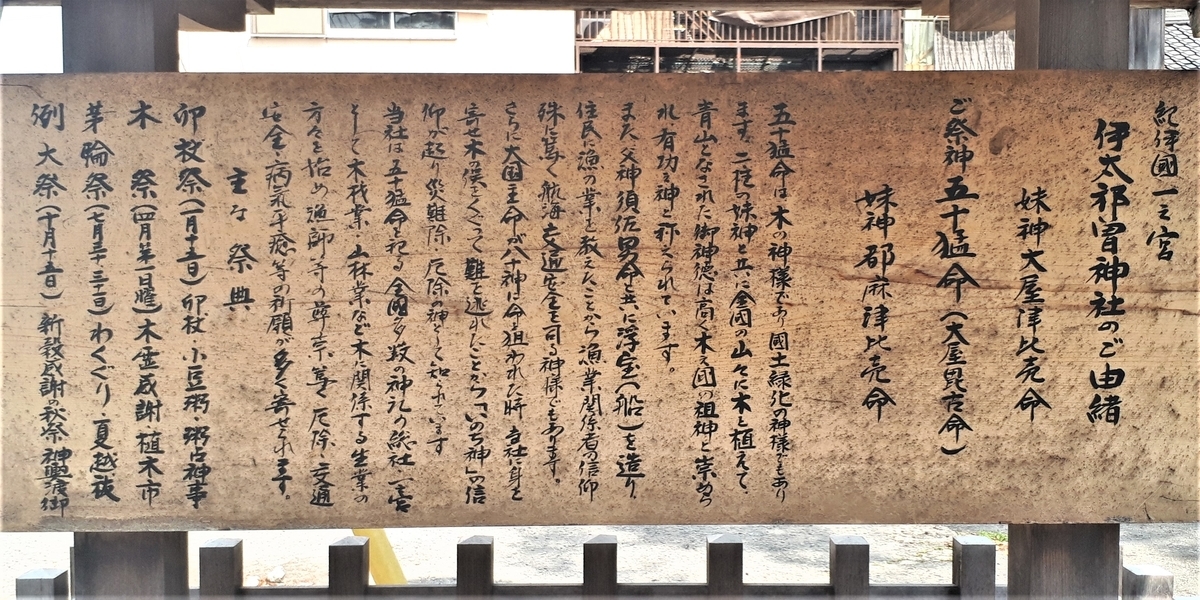 紀伊國一之宮
伊太祁曽神社のご由緒
妹神大屋津比売命
ご祭神五十猛命(大屋毘古命)
妹神都麻津比売命
五十猛命は木の神様であり國土緑化の神様でもあり
ます。二柱の妹神と共に全國の山々に木を植えて、
青山となされた御神徳は高く木之國の祖神と崇めら
れ有功之神と称えられています。
また父神須佐男命と共に浮宝(船)を造り、
住民に漁の業を教えたことから漁業関係者の信仰
殊に篤く航海交通安全を司る神様でもあります。
さらに大国主命が八十神に命を狙われた時当社に身を
寄せ木の俣をくぐって難を逃れたことから「いのち神」の信
仰が起り災難除厄除の神として知られています
当社は五十猛命を祀る全國多数の神社の総社一宮
として木材業、山林業など木に関係する生業の
方々を始め漁師等の尊崇篤く厄除、交通
安全、病気平癒等の祈願が多く寄せられます。
主な祭典
卯杖祭(一月十五日)卯杖・小豆粥・粥占神事
木祭(四月第一日曜)木霊感謝・植木市
茅輪祭(七月三十・三十一日)わくぐり・夏越祓
例大祭(十月十五日)新穀感謝の秋祭神輿渡御